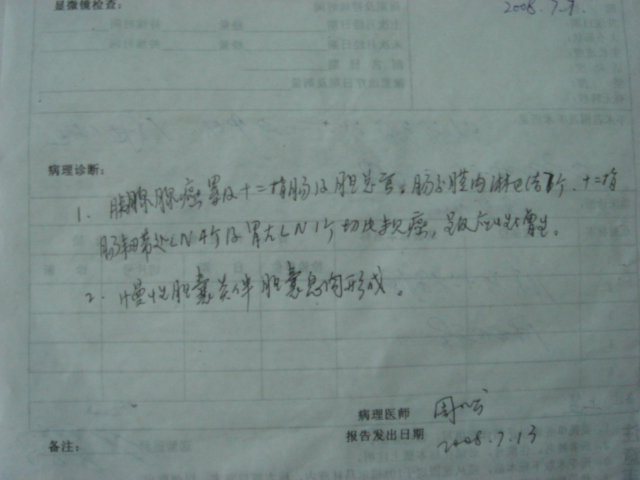 显微镜检查：
2008.7.9.
病理诊断：
1. 胰腺腺癌累及十二指肠及胆总管。肠系膜内淋巴结1个、十二指
肠韧带处LN4个及胃大LN1个切片未见癌，呈反应性增生。
2. 慢性胆囊炎伴胆囊息肉形成。
病理医师 周
报告发出日期 2008.7.13
备注：